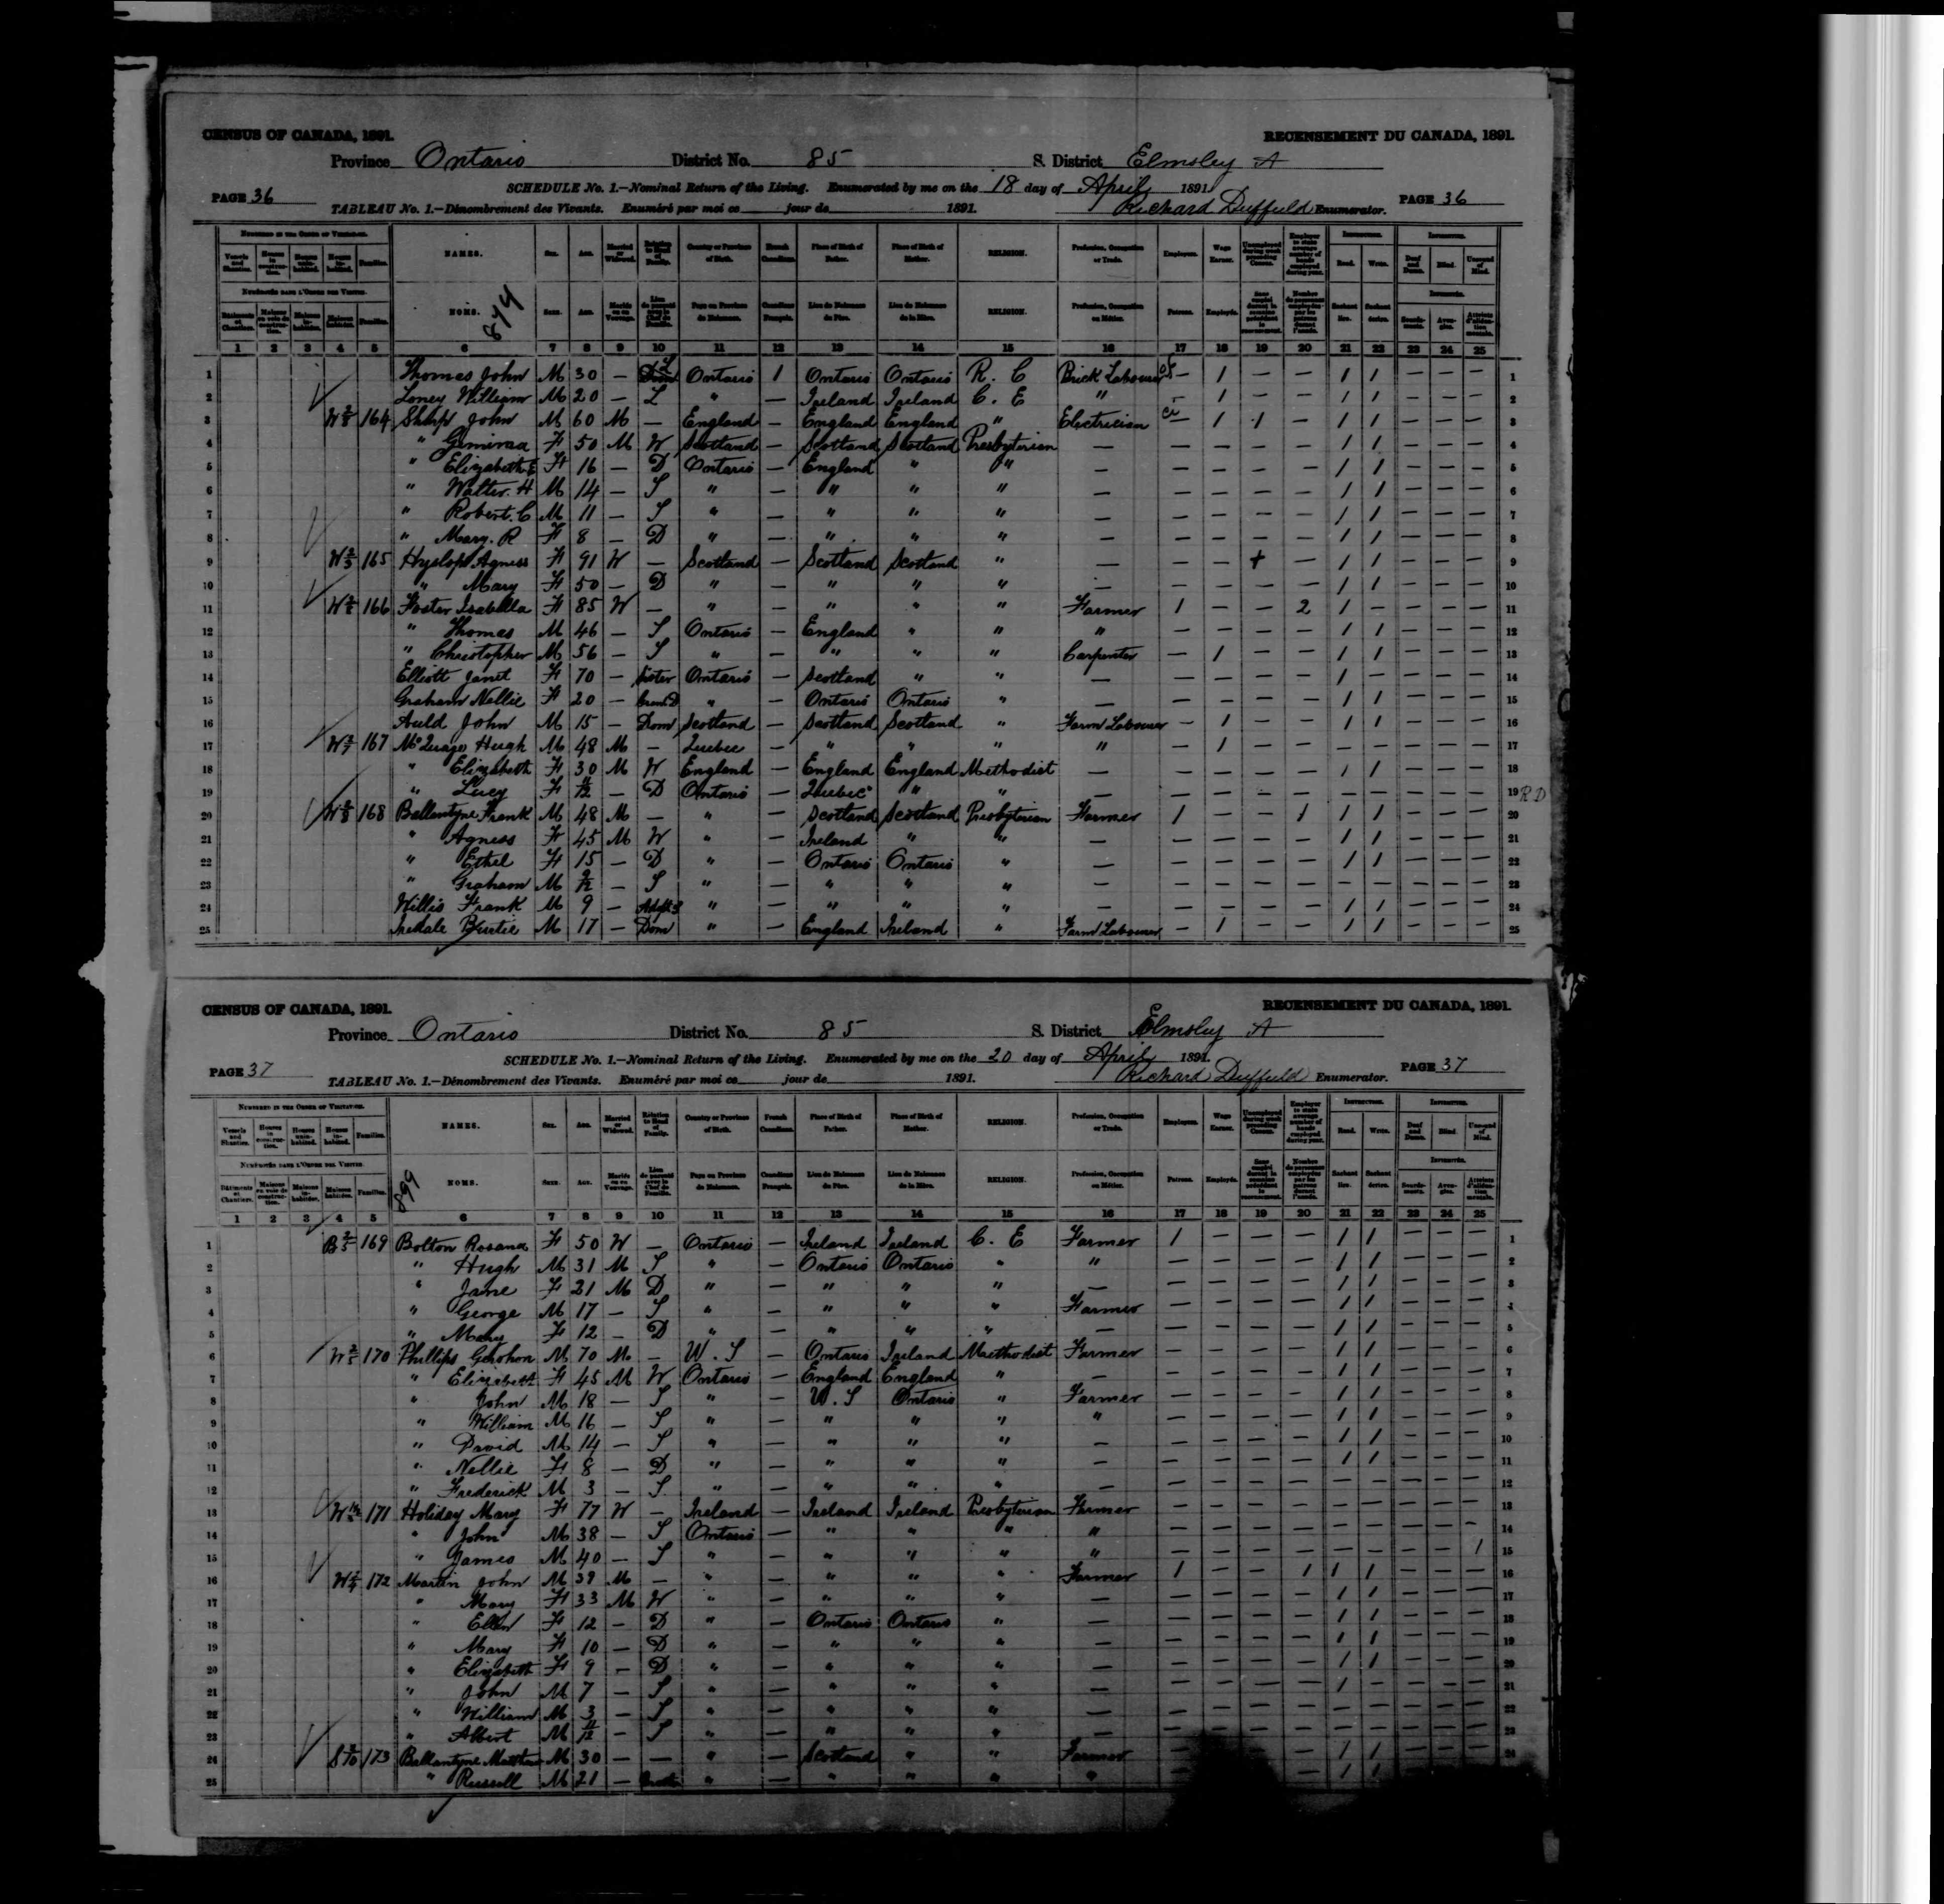 CENSUS OF CANADA, 1891. RECENSEMENT DU CANADA, 1891.
Province Ontario District No. 85 S. District Elmsley A
SCHEDULE No. 1.—Nominal Return of the Living. Enumerated by me on the 18 day of April 1891.
PAGE 36 TABLEAU No. 1.—Dénombrement des Vivants. Enuméré par moi ce jour de 1891. Richard Duffield Enumerator. PAGE 36
NAMES. Sex. Age. Married or Widowed. Relation to Head of Family. Country or Province of Birth. French Canadians. Place of Birth of Father. Place of Birth of Mother. RELIGION. Profession, Occupation or Trade. Employers. Wage Earner. Unemployed during week preceding Census. Employer to state average number of hands employed during year. Read. Write. Deaf and Dumb. Blind. Unsound of Mind.
NOMS. 844
1 2 3 4 5 6 7 8 9 10 11 12 13 14 15 16 17 18 19 20 21 22 23 24 25
1 Thomas John M 30 — L Ontario 1 Ontario Ontario R. C Brick Labourer — 1 — — 1 1 — — — 1
2 Loney William M 20 — L " — Ireland Ireland C. E " — 1 — — 1 1 — — — 2
3 164 Sharp John M 60 M — England — England England " Electrician — 1 1 — 1 1 — — — 3
4 " F 50 M W Scotland — Scotland Scotland Presbyterian — — — — — 1 1 — — — 4
5 " Elizabeth F 16 — D Ontario — England " " — — — — — 1 1 — — — 5
6 " Walter. H M 14 — S " — " " " — — — — — 1 1 — — — 6
7 " Robert. C M 11 — S " — " " " — — — — — 1 1 — — — 7
8 " Mary. R F 8 — D " — " " " — — — — — 1 1 — — — 8
9 165 Hyslop Agness F 91 W — Scotland — Scotland Scotland " — — — + — 1 1 — — — 9
10 " Mary F 50 — D " — " " " — — — — — 1 1 — — — 10
11 166 Foster Isabella F 85 W — " — " " " Farmer 1 — — 2 1 — — — — 11
12 " Thomas M 46 — S Ontario — England " " " — — — — 1 1 — — — 12
13 " Christopher M 56 — S " — " " " Carpenter — 1 — — 1 1 — — — 13
14 Elliott Janet F 70 — Sister Ontario — Scotland " " — — — — — 1 — — — — 14
15 Graham Nellie F 20 — Grand D " — Ontario Ontario " — — — — — 1 1 — — — 15
16 Auld John M 15 — Dom Scotland — Scotland Scotland " Farm Labourer — 1 — — 1 1 — — — 16
17 167 Hugh M 48 M — Quebec — " " " " — 1 — — — — — — — 17
18 " Elizabeth F 30 M W England — England England Methodist — — — — — 1 1 — — — 18
19 " Lucy F — D Ontario — Quebec " " — — — — — — — — — — 19 RD
20 168 Ballantyne Frank M 48 M — " — Scotland Scotland Presbyterian Farmer 1 — — 1 1 1 — — — 20
21 " Agness F 45 M W " — Ireland " " — — — — — 1 1 — — — 21
22 " Ethel F 15 — D " — Ontario Ontario " — — — — — 1 1 — — — 22
23 " Graham M 9/12 — S " — " " " — — — — — — — — — — 23
24 Willis Frank M 9 — Adopt S " — " " " — — — — — 1 1 — — — 24
25 Bertie M 17 — Dom " — England Ireland " Farm Labourer — 1 — — 1 1 — — — 25
CENSUS OF CANADA, 1891. RECENSEMENT DU CANADA, 1891.
Province Ontario District No. 85 S. District Elmsley A
SCHEDULE No. 1.—Nominal Return of the Living. Enumerated by me on the 20 day of April 1891.
PAGE 37 TABLEAU No. 1.—Dénombrement des Vivants. Enuméré par moi ce jour de 1891. Richard Duffield Enumerator. PAGE 37
NAMES. Sex. Age. Married or Widowed. Relation to Head of Family. Country or Province of Birth. French Canadians. Place of Birth of Father. Place of Birth of Mother. RELIGION. Profession, Occupation or Trade. Employers. Wage Earner. Unemployed during week preceding Census. Employer to state average number of hands employed during year. Read. Write. Deaf and Dumb. Blind. Unsound of Mind.
NOMS. 899
1 2 3 4 5 6 7 8 9 10 11 12 13 14 15 16 17 18 19 20 21 22 23 24 25
1 169 Bolton Rosana F 50 W — Ontario — Ireland Ireland C. E Farmer 1 — — — 1 1 — — — 1
2 " Hugh M 31 M S " — Ontario Ontario " " — — — — 1 1 — — — 2
3 " Jane F 21 M D " — " " " — — — — — 1 1 — — — 3
4 " George M 17 — S " — " " " Farmer — — — — 1 1 — — — 4
5 " Mary F 12 — D " — " " " — — — — — 1 1 — — — 5
6 170 Phillips M 70 M — W. S — Ontario Ireland Maethodist Farmer — — — — 1 1 — — — 6
7 " Elizabeth F 45 M W Ontario — England England " — — — — — 1 1 — — — 7
8 " John M 18 — S " — W. S Ontario " Farmer — — — — 1 1 — — — 8
9 " William M 16 — S " — " " " " — — — — 1 1 — — — 9
10 " David M 14 — S " — " " " — — — — — 1 1 — — — 10
11 " Nellie F 8 — D " — " " " — — — — — 1 1 — — — 11
12 " Frederick M 3 — S " — " " " — — — — — — — — — — 12
13 171 Holiday Mary F 77 W — Ireland — Ireland Ireland Presbyterian Farmer — — — — — — — — — 13
14 " John M 38 — S Ontario — " " " " — — — — — — — — — 14
15 " James M 40 — S " — " " " " — — — — — — — — 1 15
16 172 Martin John M 39 M — " — " " " Farmer 1 — — 1 1 1 — — — 16
17 " Mary F 33 M W " — " " " — — — — — 1 1 — — — 17
18 " Ellen F 12 — D " — Ontario Ontario " — — — — — 1 1 — — — 18
19 " Mary F 10 — D " — " " " — — — — — 1 1 — — — 19
20 " Elizabeth F 9 — D " — " " " — — — — — 1 1 — — — 20
21 " John M 7 — S " — " " " — — — — — 1 — — — — 21
22 " William M 3 — S " — " " " — — — — — — — — — — 22
23 " Albert M 11/12 — S " — " " " — — — — — — — — — — 23
24 173 Ballantyne M 30 — — " — Scotland " " Farmer — — 1 1 — — — 24
25 " Russell M 21 — " — " " " " — 1 1 — —